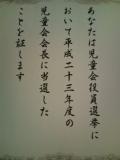 あなたは児童会役員選挙に
おいて平成二十三年度の
児童会会長に当選した
ことを証します